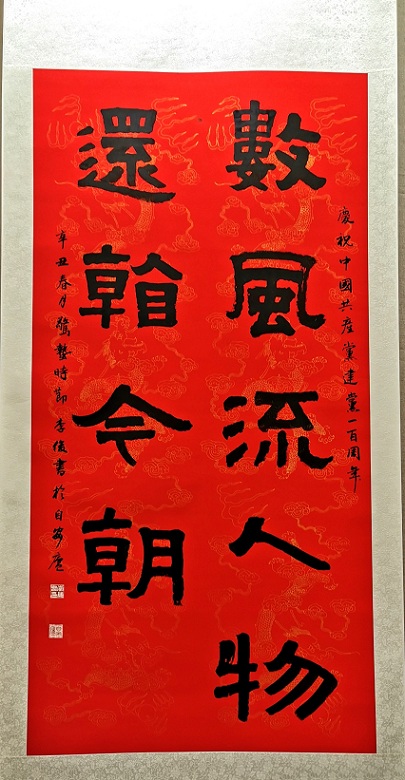 慶祝中國共產黨建黨一百周年
數風流人物
還看今朝
辛丑春月驚蟄時節李俊書於自安廬